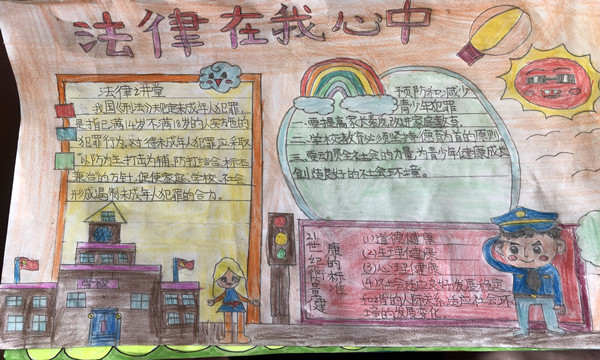 法律在我心中
法律小讲堂
我国《刑法》规定未成年人犯罪,
是指已满14岁不满18岁的人实施的
犯罪行为,对待未成年人犯罪应采取
以防为主,打击为辅,防打结合,标本
兼治的方针,促使家庭、学校、社会
形成遏制未成年人犯罪的合力。
预防和减少
青少年犯罪
一、要提高家长素质,改进家庭教育。
二、学校教育必须坚持
三、要动员全社会的力量,为青少年健康成长
创造良好的社会环境。
21世纪衡量健
康的标准
(1)道德健康
(2)生理健康
(3)心理健康
(4)社会适应良好:发展稳定
和谐的人际关系,适应社会环
境的发展变化。
学校